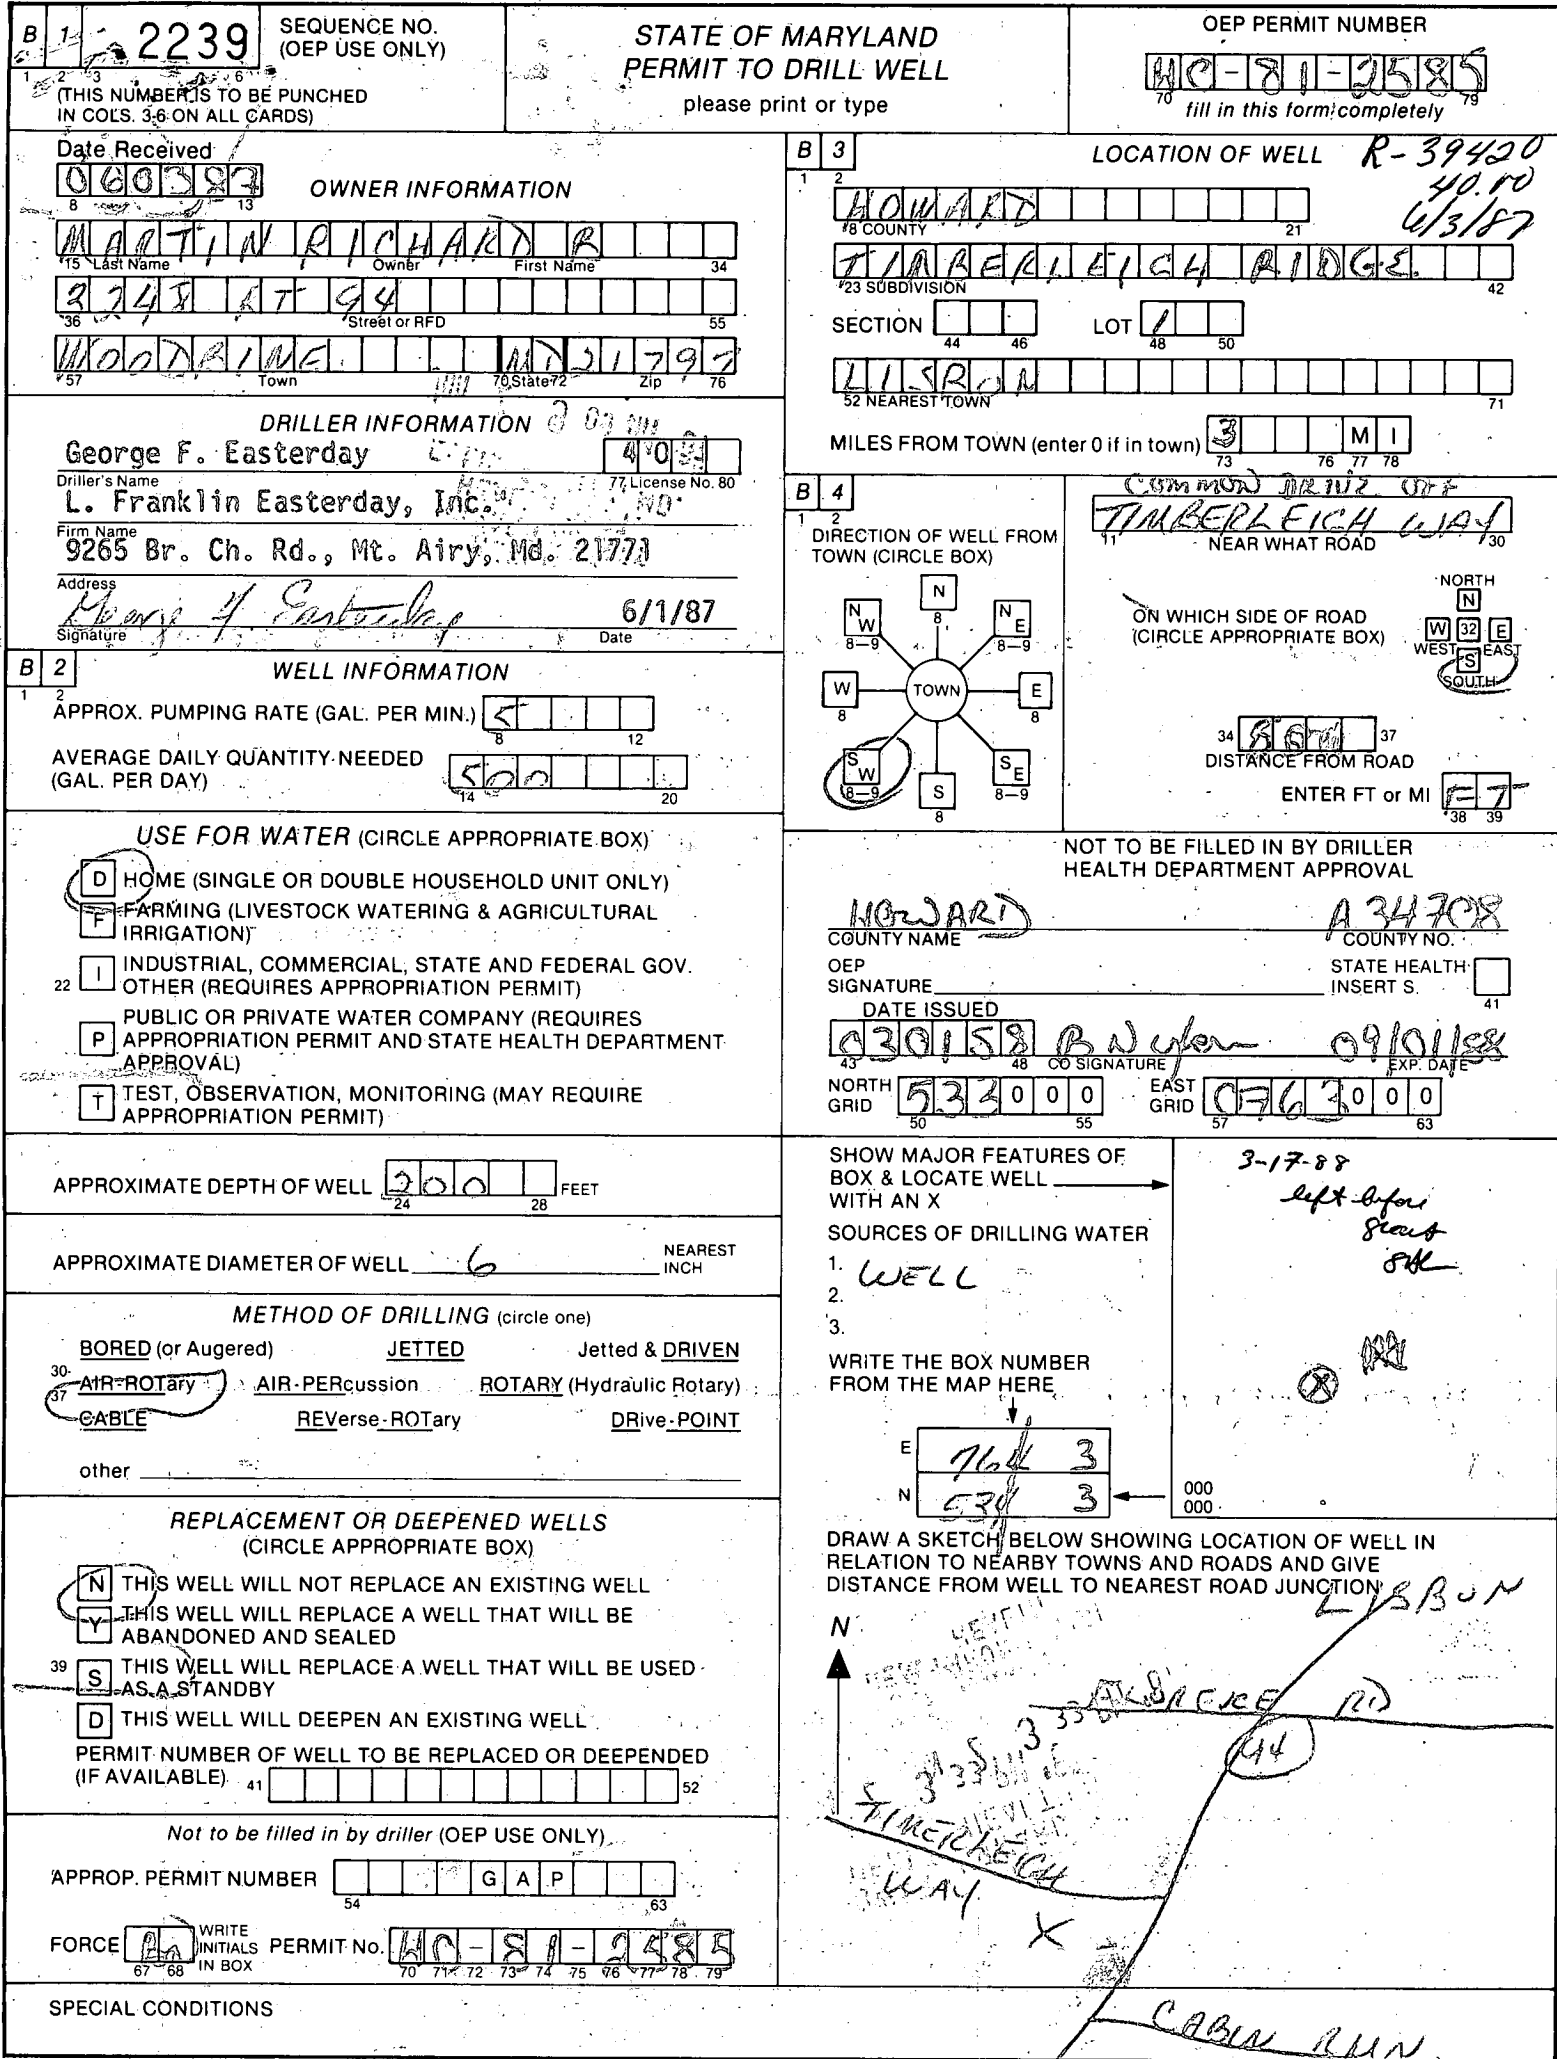 B 1 2239 SEQUENCE NO.
(OEP USE ONLY)
1 2 3 6
(THIS NUMBER IS TO BE PUNCHED
IN COLS. 3-6 ON ALL CARDS)
STATE OF MARYLAND
PERMIT TO DRILL WELL
please print or type
OEP PERMIT NUMBER
HC-81-2585
70 79
fill in this form completely
Date Received
060387
8 13
OWNER INFORMATION
MARTIN RICHARD R
15 Last Name Owner First Name 34
2248 RT 94
36 Street or RFD 55
WOODBINE MD 21797
57 Town 70 State 72 Zip 76
DRILLER INFORMATION
George F. Easterday 40
Driller's Name 77 License No. 80
L. Franklin Easterday, Inc.
Firm Name
9265 Br. Ch. Rd., Mt. Airy, Md. 21771
Address
George F Easterday 6/1/87
Signature Date
B 2 WELL INFORMATION
1 2
APPROX. PUMPING RATE (GAL. PER MIN.) 5
8 12
AVERAGE DAILY QUANTITY NEEDED
(GAL. PER DAY) 500
14 20
USE FOR WATER (CIRCLE APPROPRIATE BOX)
D HOME (SINGLE OR DOUBLE HOUSEHOLD UNIT ONLY)
F FARMING (LIVESTOCK WATERING & AGRICULTURAL
IRRIGATION)
22 I INDUSTRIAL, COMMERCIAL, STATE AND FEDERAL GOV.
OTHER (REQUIRES APPROPRIATION PERMIT)
P PUBLIC OR PRIVATE WATER COMPANY (REQUIRES
APPROPRIATION PERMIT AND STATE HEALTH DEPARTMENT
APPROVAL)
T TEST, OBSERVATION, MONITORING (MAY REQUIRE
APPROPRIATION PERMIT)
APPROXIMATE DEPTH OF WELL 200 FEET
24 28
APPROXIMATE DIAMETER OF WELL 6 NEAREST
INCH
METHOD OF DRILLING (circle one)
BORED (or Augered) JETTED Jetted & DRIVEN
30-
37 AIR-ROTary AIR-PERcussion ROTARY (Hydraulic Rotary)
CABLE REVerse-ROTary DRive-POINT
other
REPLACEMENT OR DEEPENED WELLS
(CIRCLE APPROPRIATE BOX)
N THIS WELL WILL NOT REPLACE AN EXISTING WELL
Y THIS WELL WILL REPLACE A WELL THAT WILL BE
ABANDONED AND SEALED
39 S THIS WELL WILL REPLACE A WELL THAT WILL BE USED
AS A STANDBY
D THIS WELL WILL DEEPEN AN EXISTING WELL
PERMIT NUMBER OF WELL TO BE REPLACED OR DEEPENDED
(IF AVAILABLE) 41 52
Not to be filled in by driller (OEP USE ONLY)
APPROP. PERMIT NUMBER G A P
54 63
FORCE WRITE
INITIALS
IN BOX
67 68
PERMIT No. HC-81-2585
70 71 72 73 74 75 76 77 78 79
SPECIAL CONDITIONS
B 3 LOCATION OF WELL R-39420
1 2 40.00
6/3/87
HOWARD
8 COUNTY 21
TIMBERLEIGH RIDGE
23 SUBDIVISION 42
SECTION LOT 1
44 46 48 50
LISBON
52 NEAREST TOWN 71
MILES FROM TOWN (enter 0 if in town) 3 M I
73 76 77 78
B 4
1 2
DIRECTION OF WELL FROM
TOWN (CIRCLE BOX)
N
8
NW
8-9
NE
8-9
W
8
TOWN
E
8
SW
8-9
S
8
SE
8-9
COMMON DRIVE OFF
TIMBERLEIGH WAY
11 NEAR WHAT ROAD 30
ON WHICH SIDE OF ROAD
(CIRCLE APPROPRIATE BOX)
NORTH
N
W 32 E
WEST EAST
S
SOUTH
34 37
DISTANCE FROM ROAD
ENTER FT or MI FT
38 39
NOT TO BE FILLED IN BY DRILLER
HEALTH DEPARTMENT APPROVAL
HOWARD A 34708
COUNTY NAME COUNTY NO.
OEP
SIGNATURE
STATE HEALTH
INSERT S.
41
DATE ISSUED
030158 09/01/88
43 48 CO SIGNATURE EXP. DATE
NORTH
GRID 532000
50 55
EAST
GRID 0763000
57 63
SHOW MAJOR FEATURES OF
BOX & LOCATE WELL
WITH AN X
SOURCES OF DRILLING WATER
1. WELL
2.
3.
WRITE THE BOX NUMBER
FROM THE MAP HERE
E 76 3
N 53 3
3-17-88
left before
grout
X
000
000
DRAW A SKETCH BELOW SHOWING LOCATION OF WELL IN
RELATION TO NEARBY TOWNS AND ROADS AND GIVE
DISTANCE FROM WELL TO NEAREST ROAD JUNCTION
LISBON
N
RD
94
TIMERLEIGH
WAY
X
CABIN RUN